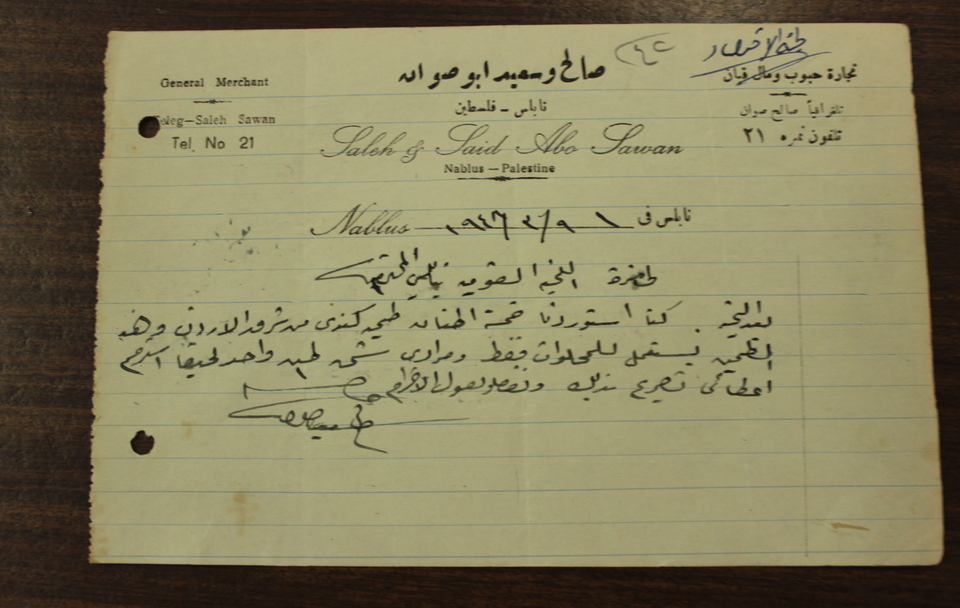 لجنة الاقتصاد
٤٢
General Merchant
Teleg—Saleh Sawan
Tel. No 21
صالح وسعيد ابو صوان
نابلس - فلسطين
Saleh & Said Abo Sawan
Nablus — Palestine
تجارة حبوب ومال قبان
تلغرافياً صالح صوان
تلفون نمره ٢١
Nablus ١٩٤٦/٣/٩ نابلس في
لحضرة اللجنة القومية بنابلس المحترمين
بعد التحية . كنا استوردنا خمسة اطنان طحين كندي من شرق الاردن وهذا
الطحين يستعمل للحلويات فقط ومرادي شحن طن واحد لحيفا استرحم
اعطائي تصريح بذلك وتفضلوا بقبول الاحترام